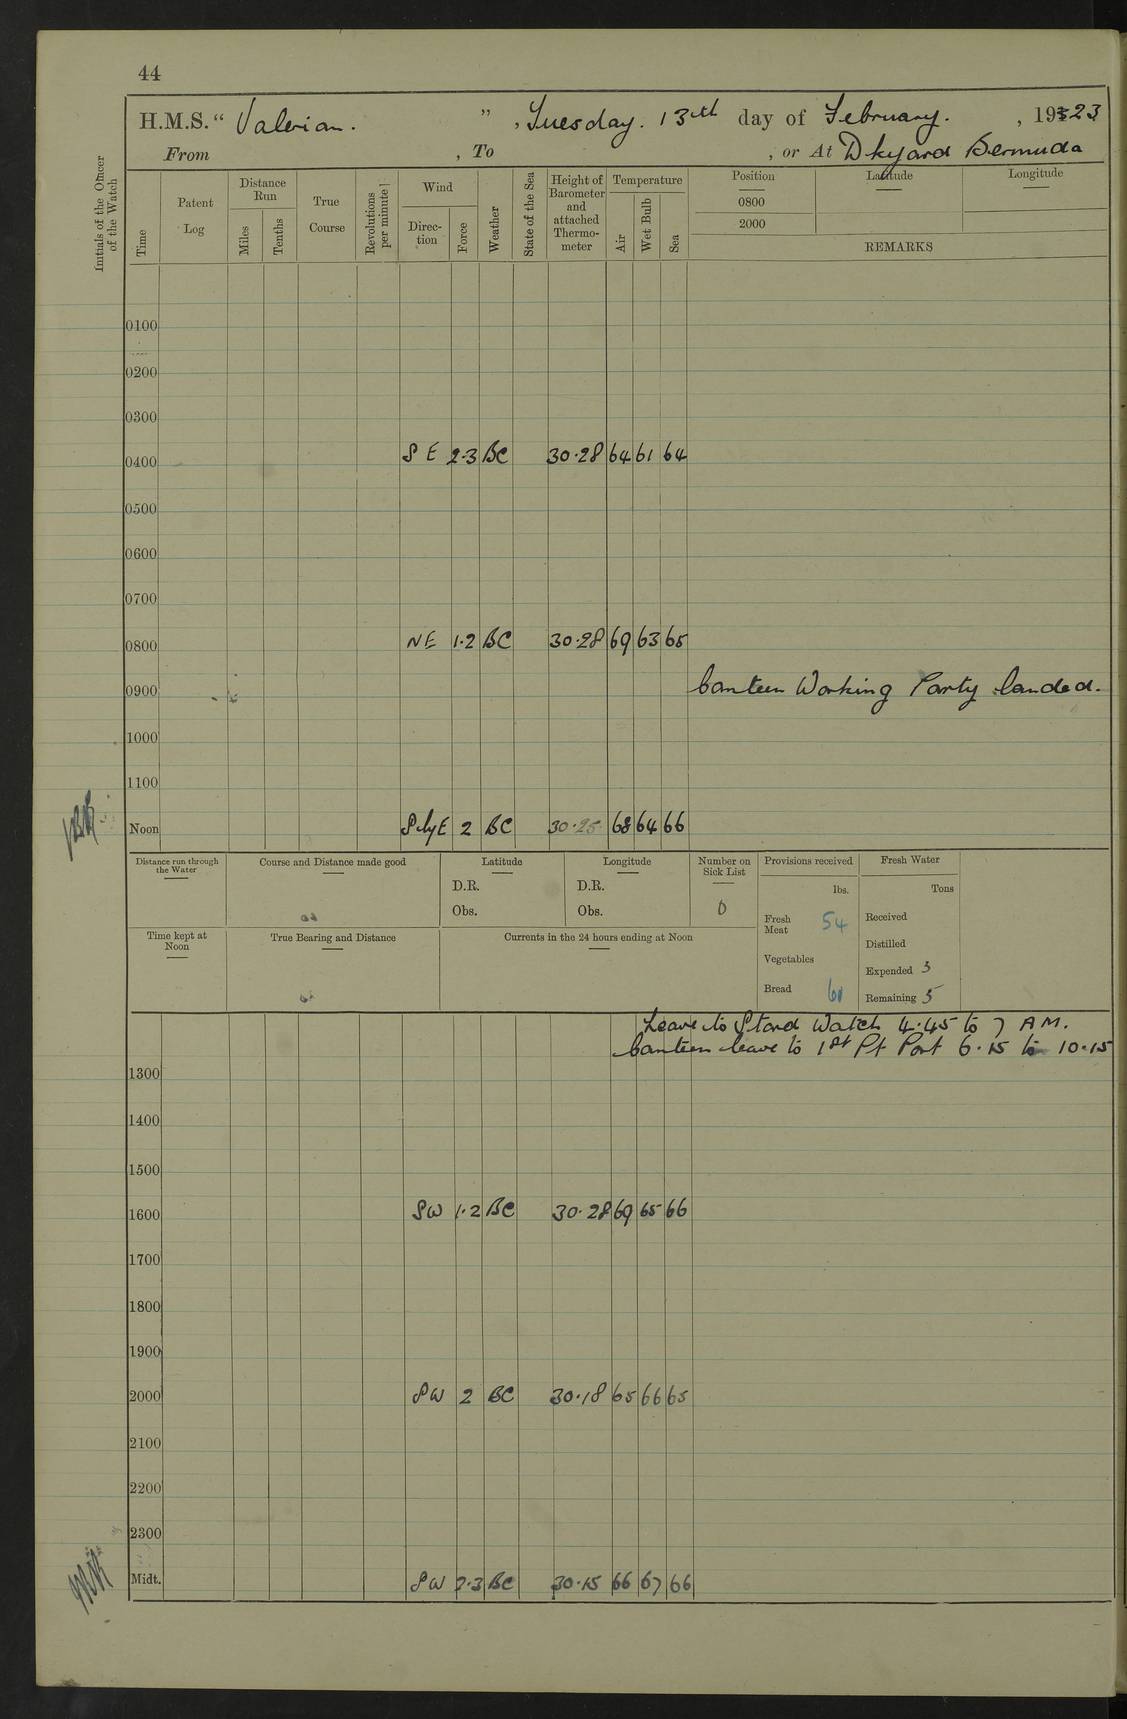 44
H.M.S. "Valerian.", Tuesday. 13th day of February., 1923
From , To , or At Dkyard Bermuda
Initials of the Officer of the Watch
Time
Patent Log
Distance Run
Miles
Tenths
True Course
Revolutions per minute
Wind
Direction
Force
Weather
State of the Sea
Height of Barometer and attached Thermometer
Temperature
Air
Wet Bulb
Sea
Position Latitude Longitude
0800
2000
REMARKS
0100
0200
0300
0400 S E 2·3 BC 30·28 64 61 64
0500
0600
0700
0800 NE 1·2 BC 30·28 69 63 65
0900 Canteen Working Party landed.
1000
1100
Noon SlyE 2 BC 30·25 68 64 66
Distance run through the Water
Course and Distance made good
Latitude
D.R.
Obs.
Longitude
D.R.
Obs.
Number on Sick List
0
Provisions received
lbs.
Fresh Meat 54
Vegetables
Bread 60
Fresh Water
Tons
Received
Distilled
Expended 3
Remaining 5
Time kept at Noon
True Bearing and Distance
Currents in the 24 hours ending at Noon
Leave to Stard Watch 4·45 to 7 AM.
Canteen leave to 1st Pt Port 6·15 to 10·15
1300
1400
1500
1600 SW 1·2 BC 30·28 69 65 66
1700
1800
1900
2000 SW 2 BC 30·18 65 66 65
2100
2200
2300
Midt. SW 2·3 BC 30·15 66 67 66